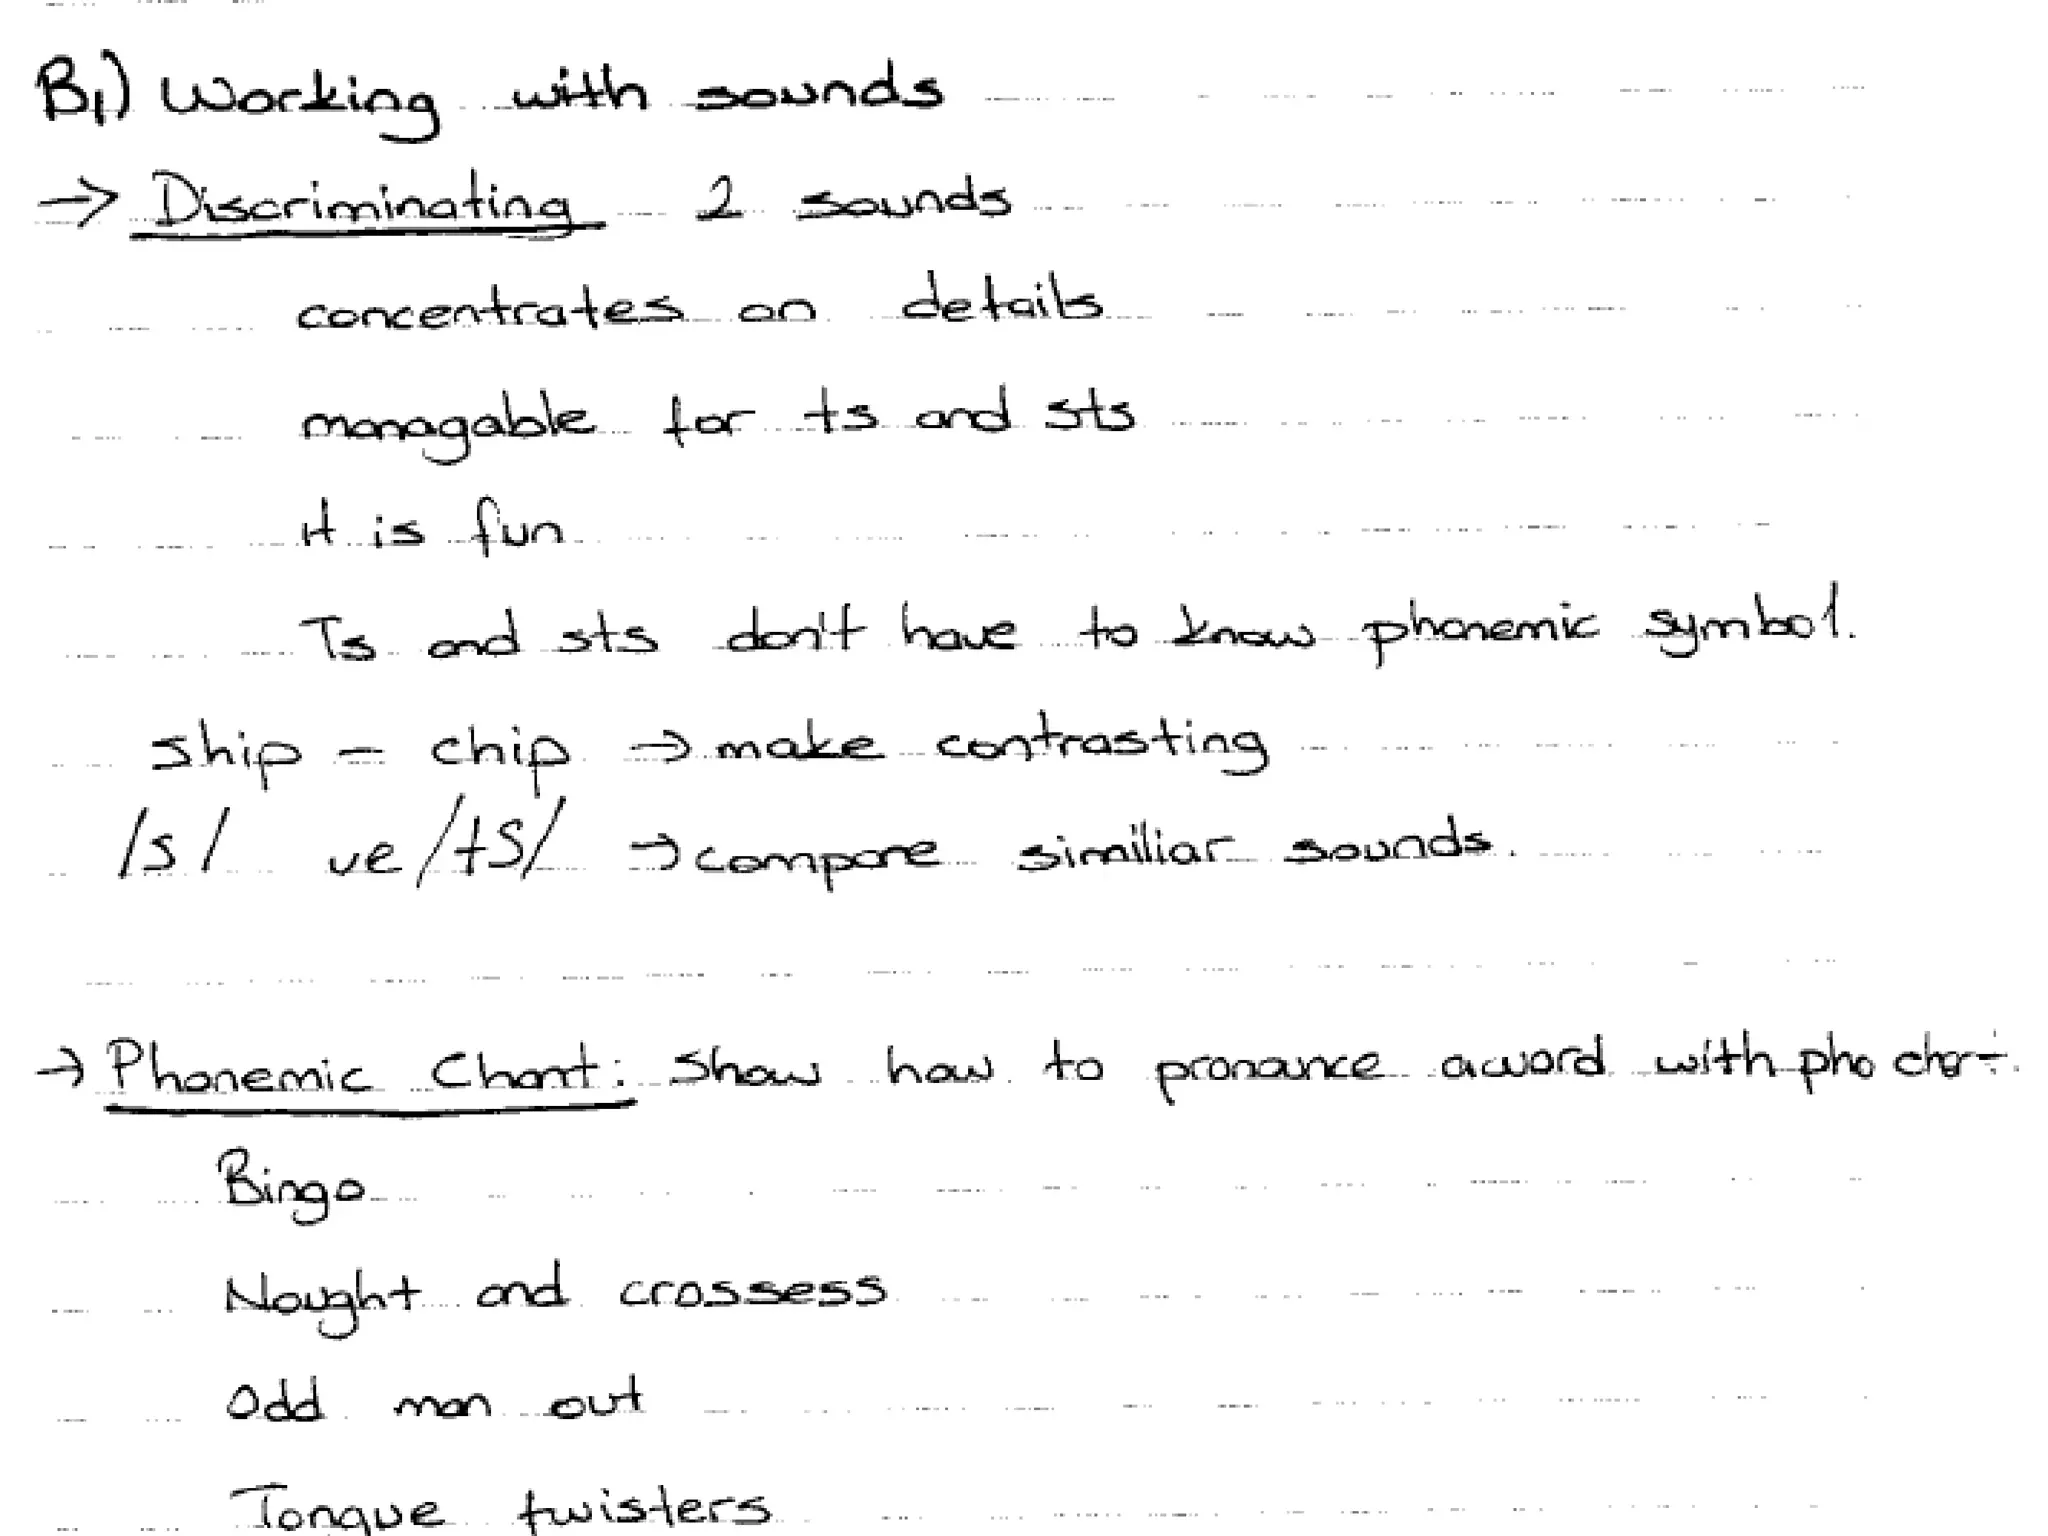 B1) Working with sounds
→ Discriminating 2 sounds
concentrates on details
managable for ts and sts
It is fun
Ts and sts don't have to know phonemic symbol.
ship – chip → make contrasting
/s/ ve /tS/ → compare similiar sounds.
→ Phonemic Chart: Show how to pronounce a word with pho chart.
Bingo
Nought and crossess
Odd man out
Tongue twisters